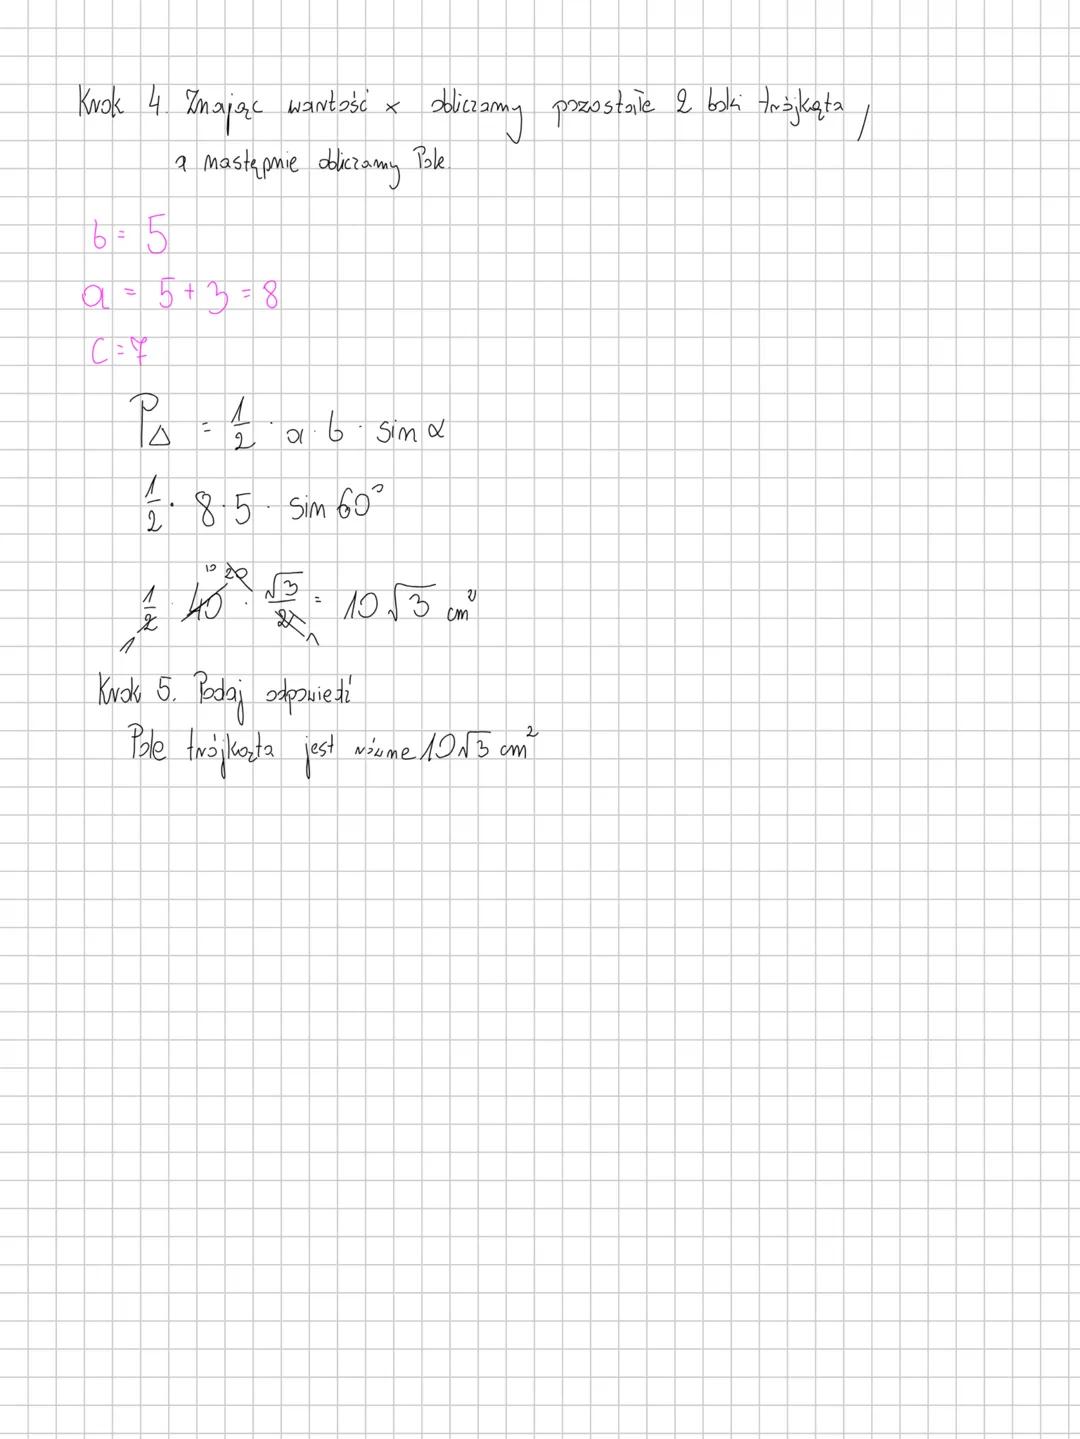 Krok 4. Znając wartość x obliczamy pozostałe 2 boki trójkąta,
a następnie obliczamy Pole.
b = 5
a = 5 + 3 = 8
c = 7
P△ = 1/2 · a · b · sin α
1/2 · 8 · 5 · sin 60°
10 20
1/2 · 40 · √3/2 = 10√3 cm²
1 1
Krok 5. Podaj odpowiedź
Pole trójkąta jest równe 10√3 cm²